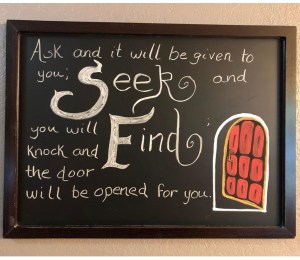 Ask and it will be given to
you; Seek and
you will Find;
knock and
the door
will be opened for you.